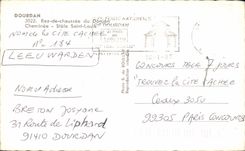 DOURDAN
3022. Rez-de-chaussée du
Cheminée - Stèle Saint-Louis
NOM DE LA CITE CACHEE
N° 184
LEEUWARDEN
NOM Adresse
BRETON Josyane
31 Route de Liphard
91410 DOURDAN
CONCOURS TELE 7 JOURS
"TROUVEZ LA CITE CACHEE"
Cedex 3050
99305 PARIS CONCOURS